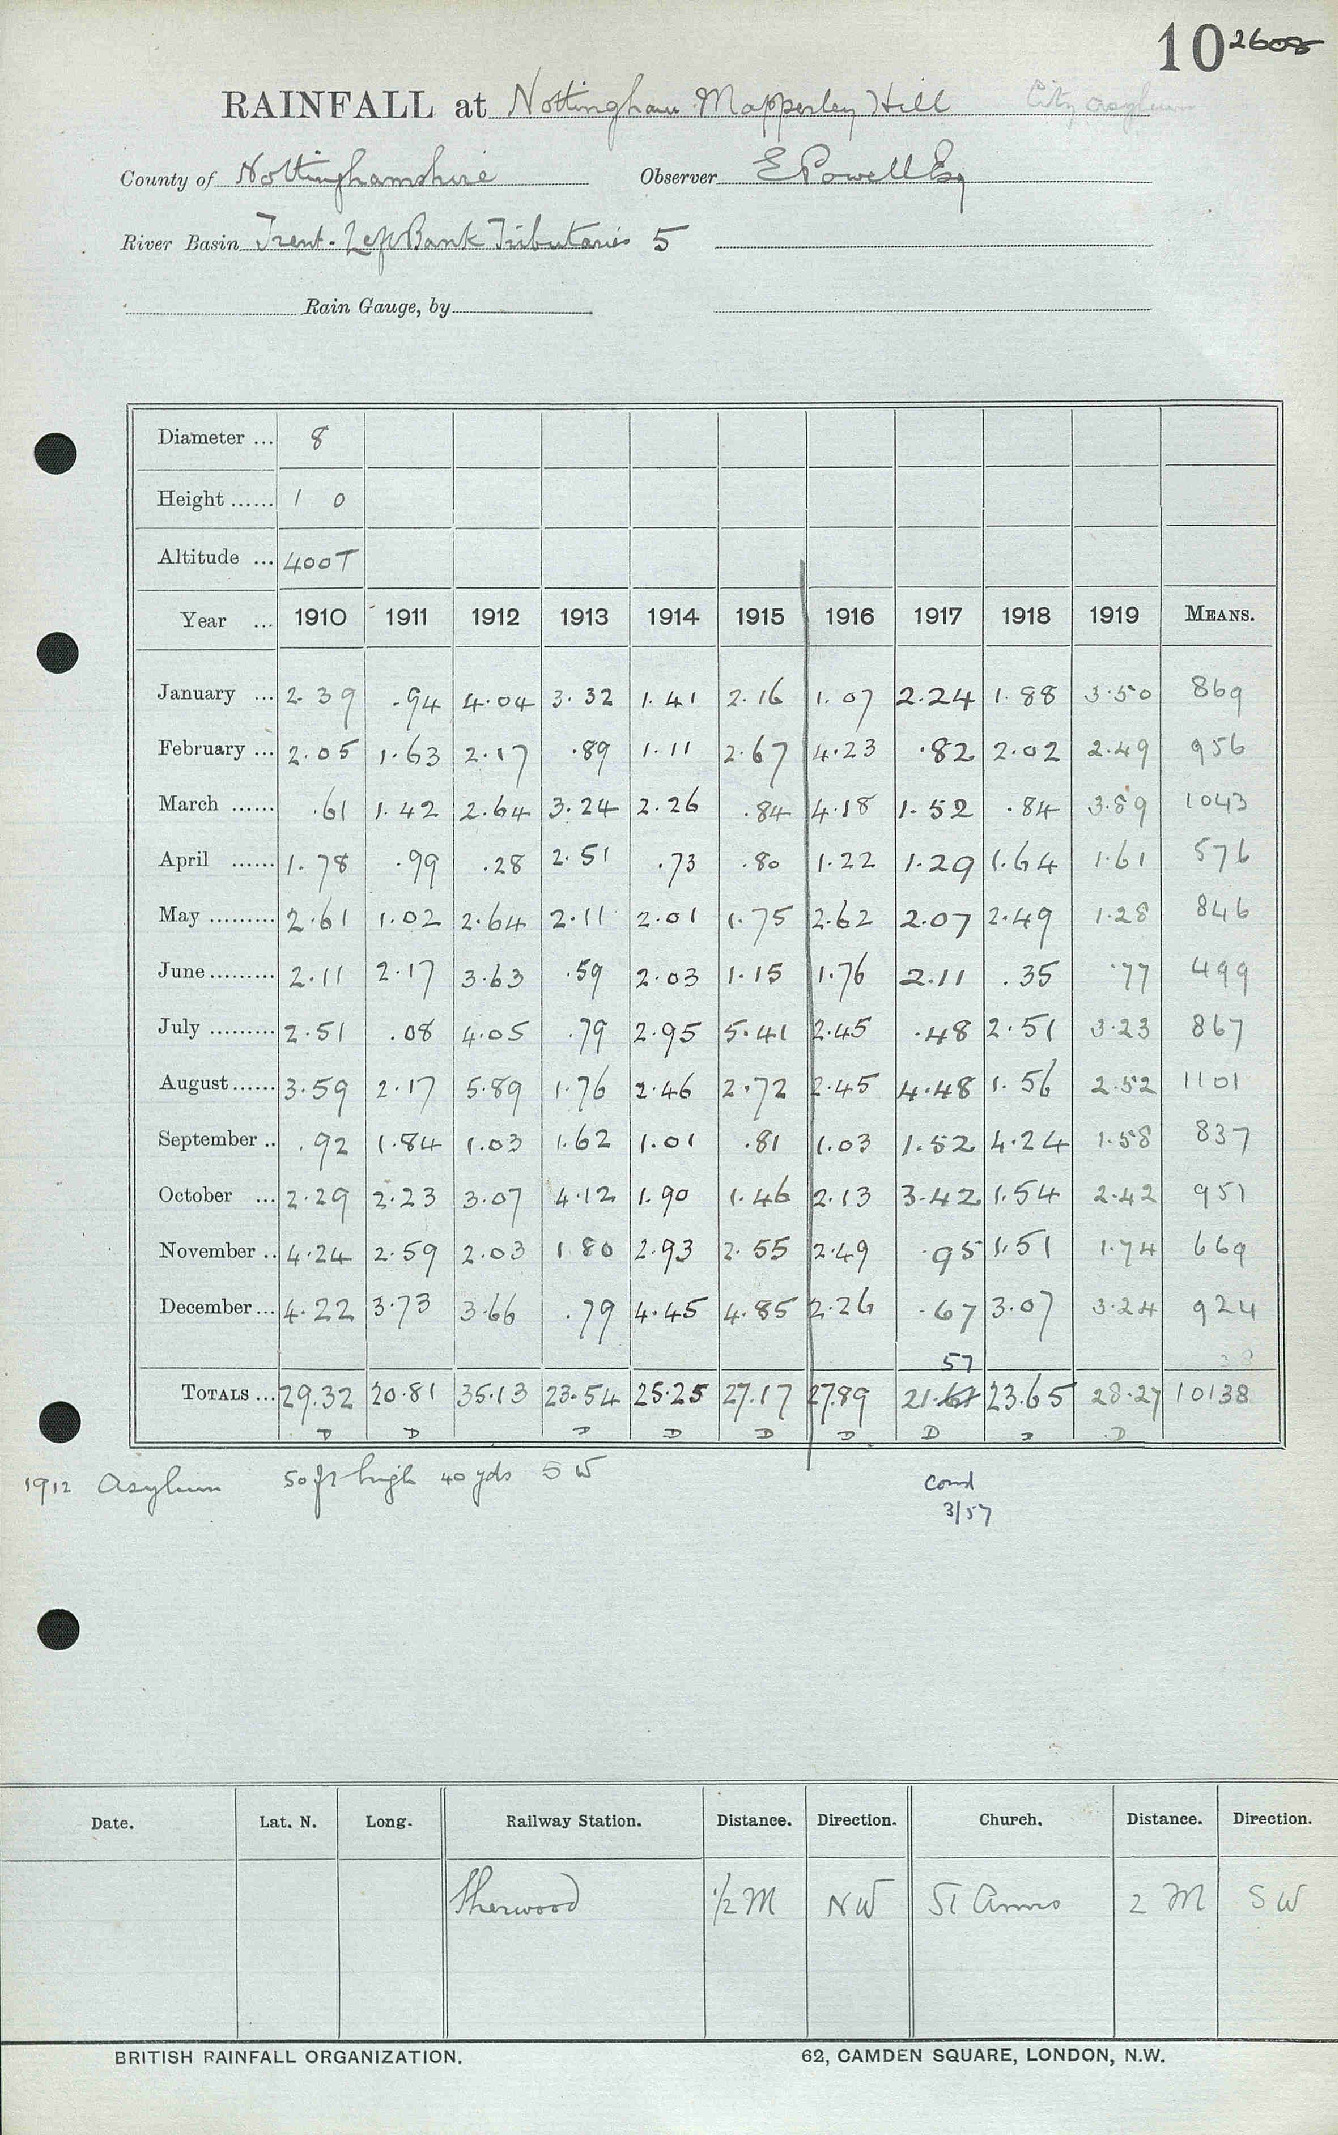 10 2608
RAINFALL at Nottingham Mapperley Hill City Asylum
County of Nottinghamshire Observer E Powell Esq
River Basin Trent. Left Bank Tributaries 5
Rain Gauge, by
Diameter ... 8
Height ...... 1 0
Altitude ... 400T
Year ... 1910 1911 1912 1913 1914 1915 1916 1917 1918 1919 MEANS.
January ... 2.39 .94 4.04 3.32 1.41 2.16 1.07 2.24 1.88 3.50 869
February ... 2.05 1.63 2.17 .89 1.11 2.67 4.23 .82 2.02 2.49 956
March ...... .61 1.42 2.64 3.24 2.26 .84 4.18 1.52 .84 3.89 1043
April ...... 1.78 .99 .28 2.51 .73 .80 1.22 1.29 1.64 1.61 576
May .......... 2.61 1.02 2.64 2.11 2.01 1.75 2.62 2.07 2.49 1.28 846
June.......... 2.11 2.17 3.63 .59 2.03 1.15 1.76 2.11 .35 .77 499
July .......... 2.51 .08 4.05 .79 2.95 5.41 2.45 .48 2.51 3.23 867
August...... 3.59 2.17 5.89 1.76 2.46 2.72 2.45 4.48 1.56 2.52 1101
September .. .92 1.84 1.03 1.62 1.01 .81 1.03 1.52 4.24 1.58 837
October ... 2.29 2.23 3.07 4.12 1.90 1.46 2.13 3.42 1.54 2.42 951
November .. 4.24 2.59 2.03 1.80 2.93 2.55 2.49 .95 1.51 1.74 669
December... 4.22 3.73 3.66 .79 4.45 4.85 2.26 .67 3.07 3.24 924
57
TOTALS ... 29.32 20.81 35.13 23.54 25.25 27.17 27.89 21.67 23.65 28.27 10138
D D D D D D D D D
1912 Asylum 50 ft high 40 yds SW
Cond
3/57
Date. Lat. N. Long. Railway Station. Distance. Direction. Church. Distance. Direction.
Sherwood 1/2 M NW St Anns 2 M SW
BRITISH RAINFALL ORGANIZATION. 62, CAMDEN SQUARE, LONDON, N.W.